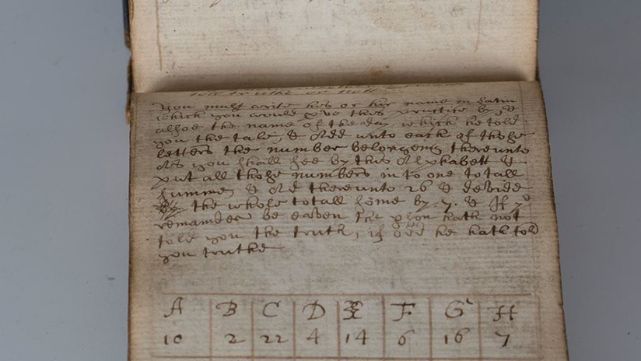 You must write his or her name in Latin
which you would prove this practice by &
allsoe the name of the day which he told
you the tale, & Add unto each of those
letters the number belongeing thereunto
As you shall see by this Alphabett &
put all those numbers in to one totall
summe & Ad thereunto 26 & devide
the whole totall some by .7. & If ye
remainder be eaven the person hath not
told you the truth, if odd he hath told
you truthe
A B C D E F G H
10 2 22 4 14 6 16 7